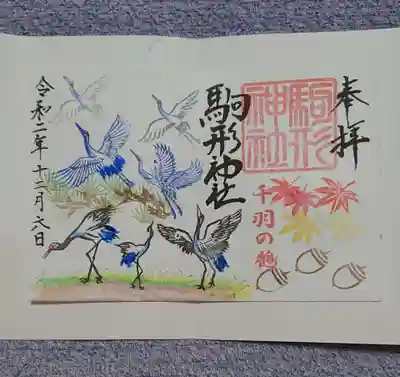 奉拝
駒形神社
駒形神社
千羽の鶴
令和二年十二月六日